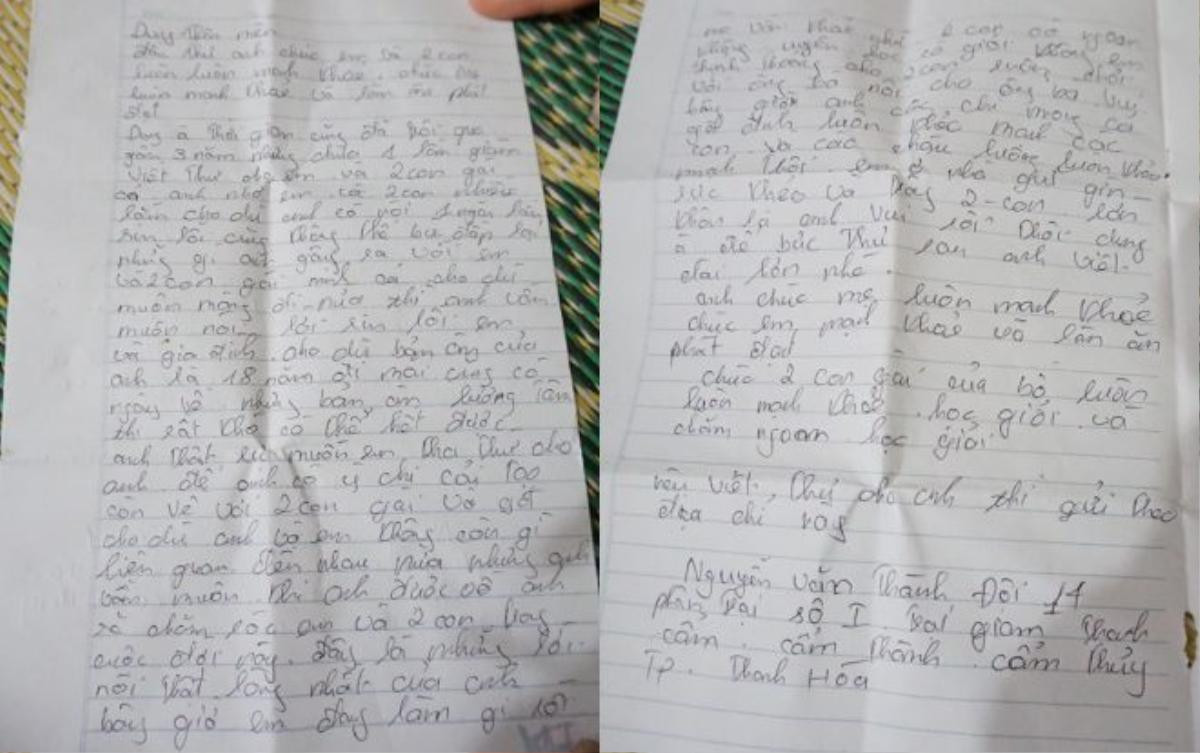 Duy thân mến
đầu thư anh chúc em và 2 con
luôn luôn mạnh khỏe. chúc mẹ
luôn mạnh khỏe và làm ăn phát
đạt
Duy à thời gian cũng đã trôi qua
gần 3 năm chưa 1 lần
viết thư cho em và 2 con gái
anh nhớ em và 2 con nhiều
lắm cho dù anh có nói 1 ngàn lần
xin lỗi cũng không thể bù đắp lại
những gì anh gây ra với em
và 2 con gái mình cho dù
muộn màng đi nữa thì anh vẫn
muốn nói lời xin lỗi em
và gia đình. cho dù bản án của
anh là 18 năm đi mãi cũng có
ngày về nhưng bản án lương tâm
thì rất khó có thể hết được
anh thật sự muốn em thư cho
anh để anh có ý chí cải tạo
còn về với 2 con gái
cho dù anh và em không còn gì
liên quan đến nhau nữa nhưng anh
vẫn muốn khi anh được về anh
sẽ chăm sóc em và 2 con
cuộc đời này. đây là những lời
nói thật lòng nhất của anh
bây giờ em đang làm gì rồi
mẹ vẫn khỏe 2 con có ngoan
không có giỏi không em
cho 2 con xuống chơi
với ông bà nội cho ông bà vui
bây giờ anh chỉ mong cả
gia đình luôn mạnh các
con và các cháu luôn luôn khỏe
mạnh thôi. em ở nhà giữ gìn
sức khỏe và 2 con lớn
khôn là anh vui rồi thôi dừng
ở để bức thư sau anh viết
dài hơn nhé.
anh chúc mẹ luôn mạnh khỏe
chúc em mạnh khỏe và làm ăn
phát đạt
chúc 2 con gái của bố luôn
luôn mạnh khỏe. học giỏi và
chăm ngoan học giỏi
nếu viết thư cho anh thì gửi theo
địa chỉ này
Nguyễn văn Thành Đội 14
phân trại số I. trại giam Thanh
cẩm. cẩm thành. cẩm thủy
TP. Thanh Hóa